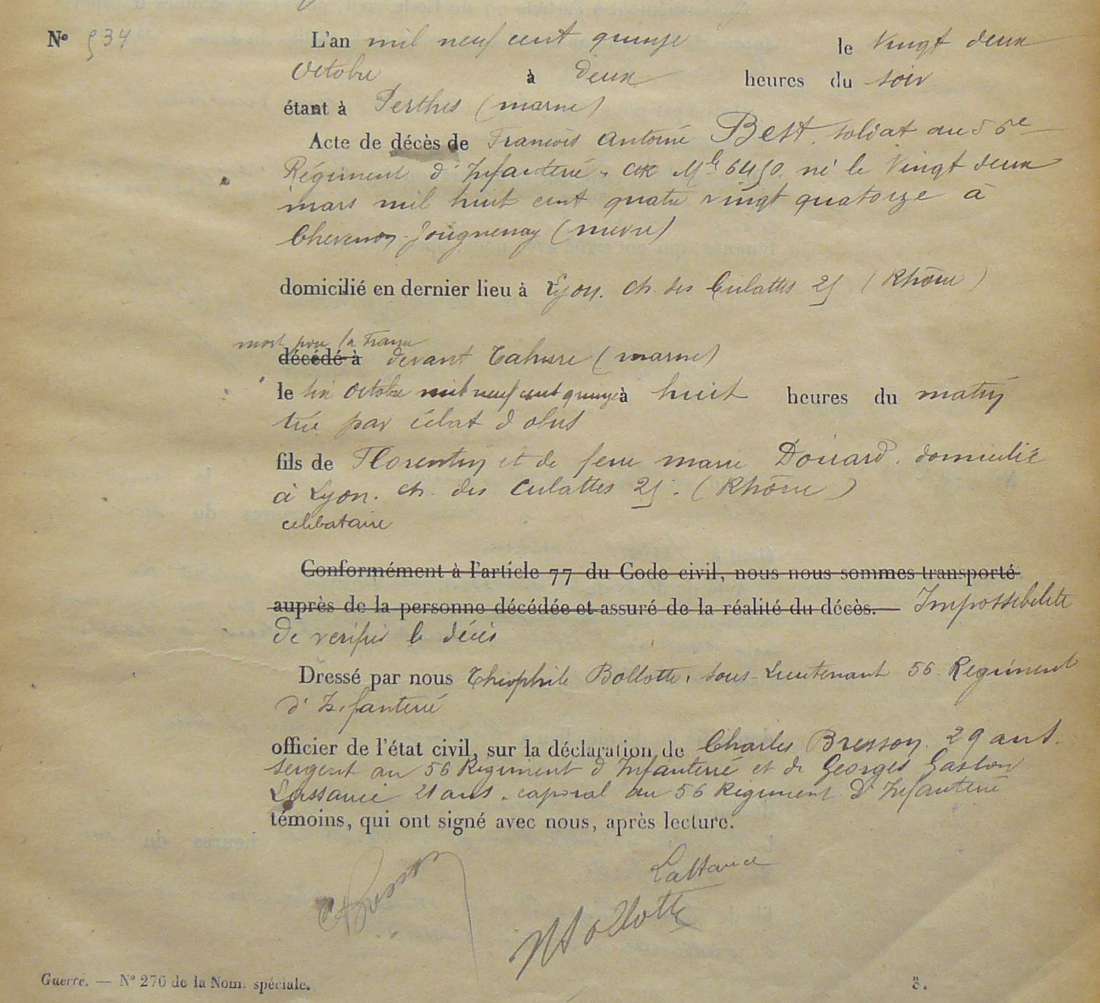 N° 934
L'an mil neuf cent quinze le vingt deux
Octobre à deux heures du soir
étant à Perthes (marne)
Acte de décès de François Antoine Best, soldat au 56e
Régiment d'Infanterie. Mle 6450, né le vingt deux
mars mil huit cent quatre vingt quatorze à
Chevenon (nievre)
domicilié en dernier lieu à Lyon. ch. des Culattes 25 (Rhône)
mort pour la France
décédé à devant Tahure (marne)
le six Octobre mil neuf cent quinze à huit heures du matin
tué par éclat d'obus
fils de Florentin et de feue marie Douard. domicilié
à Lyon. ch. des Culattes 25. (Rhône)
celibataire
Conformément à l'article 77 du Code civil, nous nous sommes transporté
auprès de la personne décédée et assuré de la réalité du décès. Impossibilité
de verifié le décès
Dressé par nous Théophile Bollotte, sous-Lieutenant 56 Regiment
d'Infanterie
officier de l'état civil, sur la déclaration de Charles Bresson. 29 ans.
Sergent au 56 Regiment d'Infanterie et de Georges Gaston
21 ans. caporal au 56 Regiment d'Infanterie
témoins, qui ont signé avec nous, après lecture.
Bresson
Bollotte
Guerre. — N° 276 de la Nom. spéciale. 3.